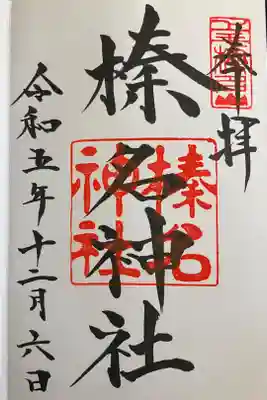 奉拝
榛名神社
榛名
神社
令和五年十二月六日